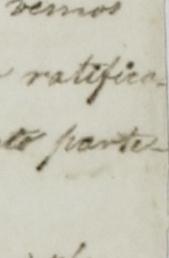 vemos
ratifica-
to parte-